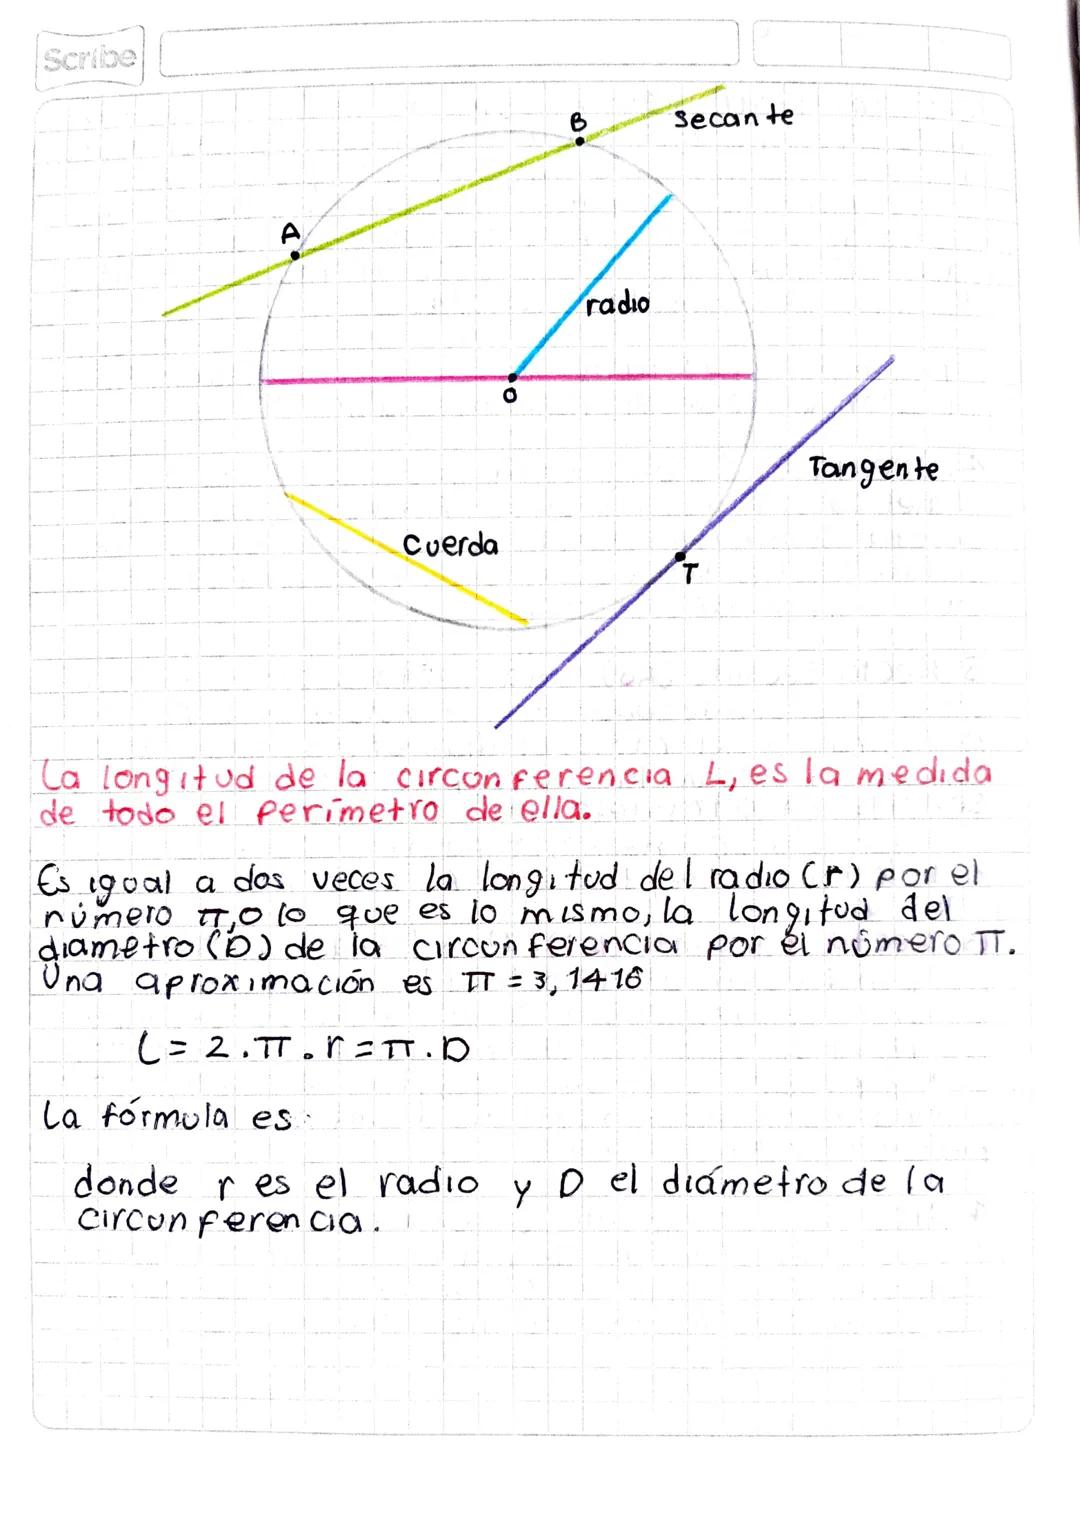 Scribe
B
secante
A
radio
O
Tangente
cuerda
T
La longitud de la circunferencia L, es la medida
de todo el perímetro de ella.
Es igual a dos veces la longitud del radio (r) por el
número π, o lo que es lo mismo, la longitud del
diametro (D) de la circunferencia por el número π.
Una aproximación es π = 3,1416
L = 2 . π . r = π . D
La fórmula es:
donde r es el radio y D el diámetro de la
circunferencia.